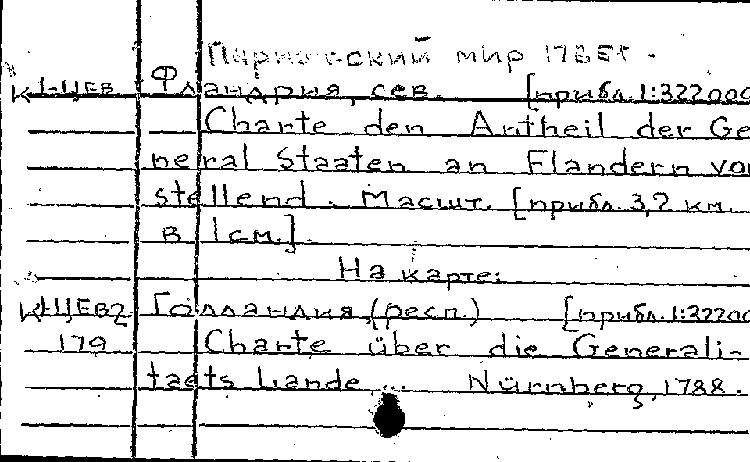 Парижский мир 1785г.
К1-ЦЕВ Фландрия, сев. [прибл. 1:322000
Charte den Antheil der Ge-
neral Staaten an Flandern vor
stellend. Масшт. [прибл. 3,2 км.
в 1 см.].
На карте:
К1-ЦЕВ2 Голландия, (респ.) [прибл. 1:322000
179 Charte über die Generali-
taets Lande ... Nürnberg, 1788.